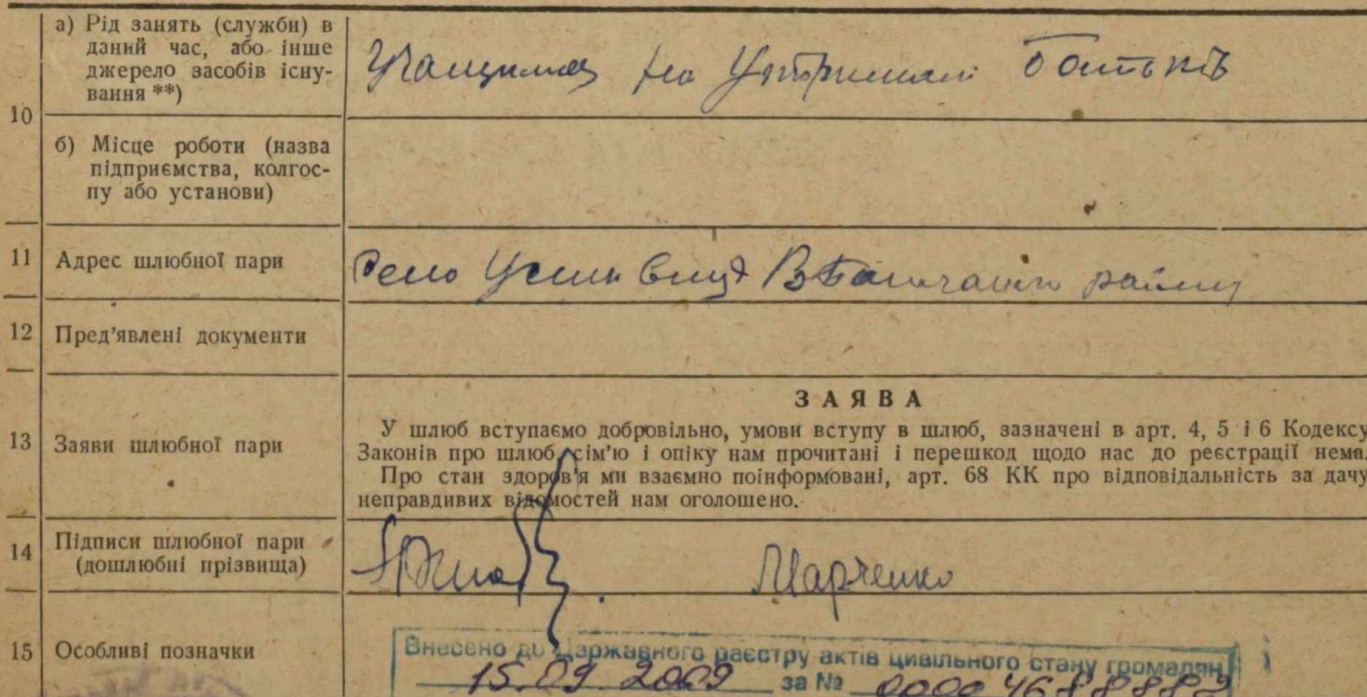 10
а) Рід занять (служби) в
даний час, або інше
джерело засобів існу-
вання **)
на Утриманні Батьків
б) Місце роботи (назва
підприємства, колгос-
пу або установи)
11 Адрес шлюбної пари
Село району
12 Пред'явлені документи
13 Заяви шлюбної пари
ЗАЯВА
У шлюб вступаємо добровільно, умови вступу в шлюб, зазначені в арт. 4, 5 і 6 Кодексу
Законів про шлюб, сім'ю і опіку нам прочитані і перешкод щодо нас до реєстрації нема.
Про стан здоров'я ми взаємно поінформовані, арт. 68 КК про відповідальність за дачу
неправдивих відомостей нам оголошено.
14 Підписи шлюбної пари
(дошлюбні прізвища)
Марченко
15 Особливі позначки
Внесено до Державного реєстру актів цивільного стану громадян
15.09.2009 за №